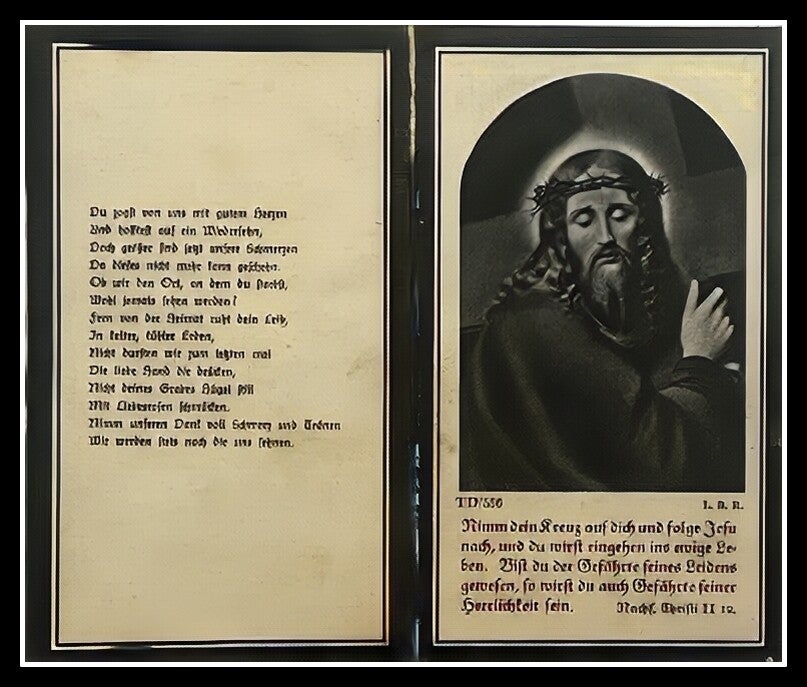 Du zogst von uns mit gutem Herzen
Und hofftest auf ein Wiedersehn,
Doch größer sind jetzt unsere Schmerzen
Da dieses nicht mehr kann geschehn.
Ob wir den Ort, an dem du starbst,
Wohl jemals sehen werden?
Fern von der Heimat ruht dein Leib,
In kalter, kühler Erden,
Nicht durften wir zum letzten mal
Die liebe Hand dir drücken,
Nicht deines Grabes Hügel still
Mit Liebesrosen schmücken.
Nimm unseren Dank voll Schmerz und Tränen
Wir werden stets noch dir uns sehnen.
TD/550 L. A. R.
Nimm dein Kreuz auf dich und folge Jesu
nach, und du wirst eingehen ins ewige Le-
ben. Bist du der Gefährte seines Leidens
gewesen, so wirst du auch Gefährte seiner
Herrlichkeit sein. Nachf. Christi II 12.